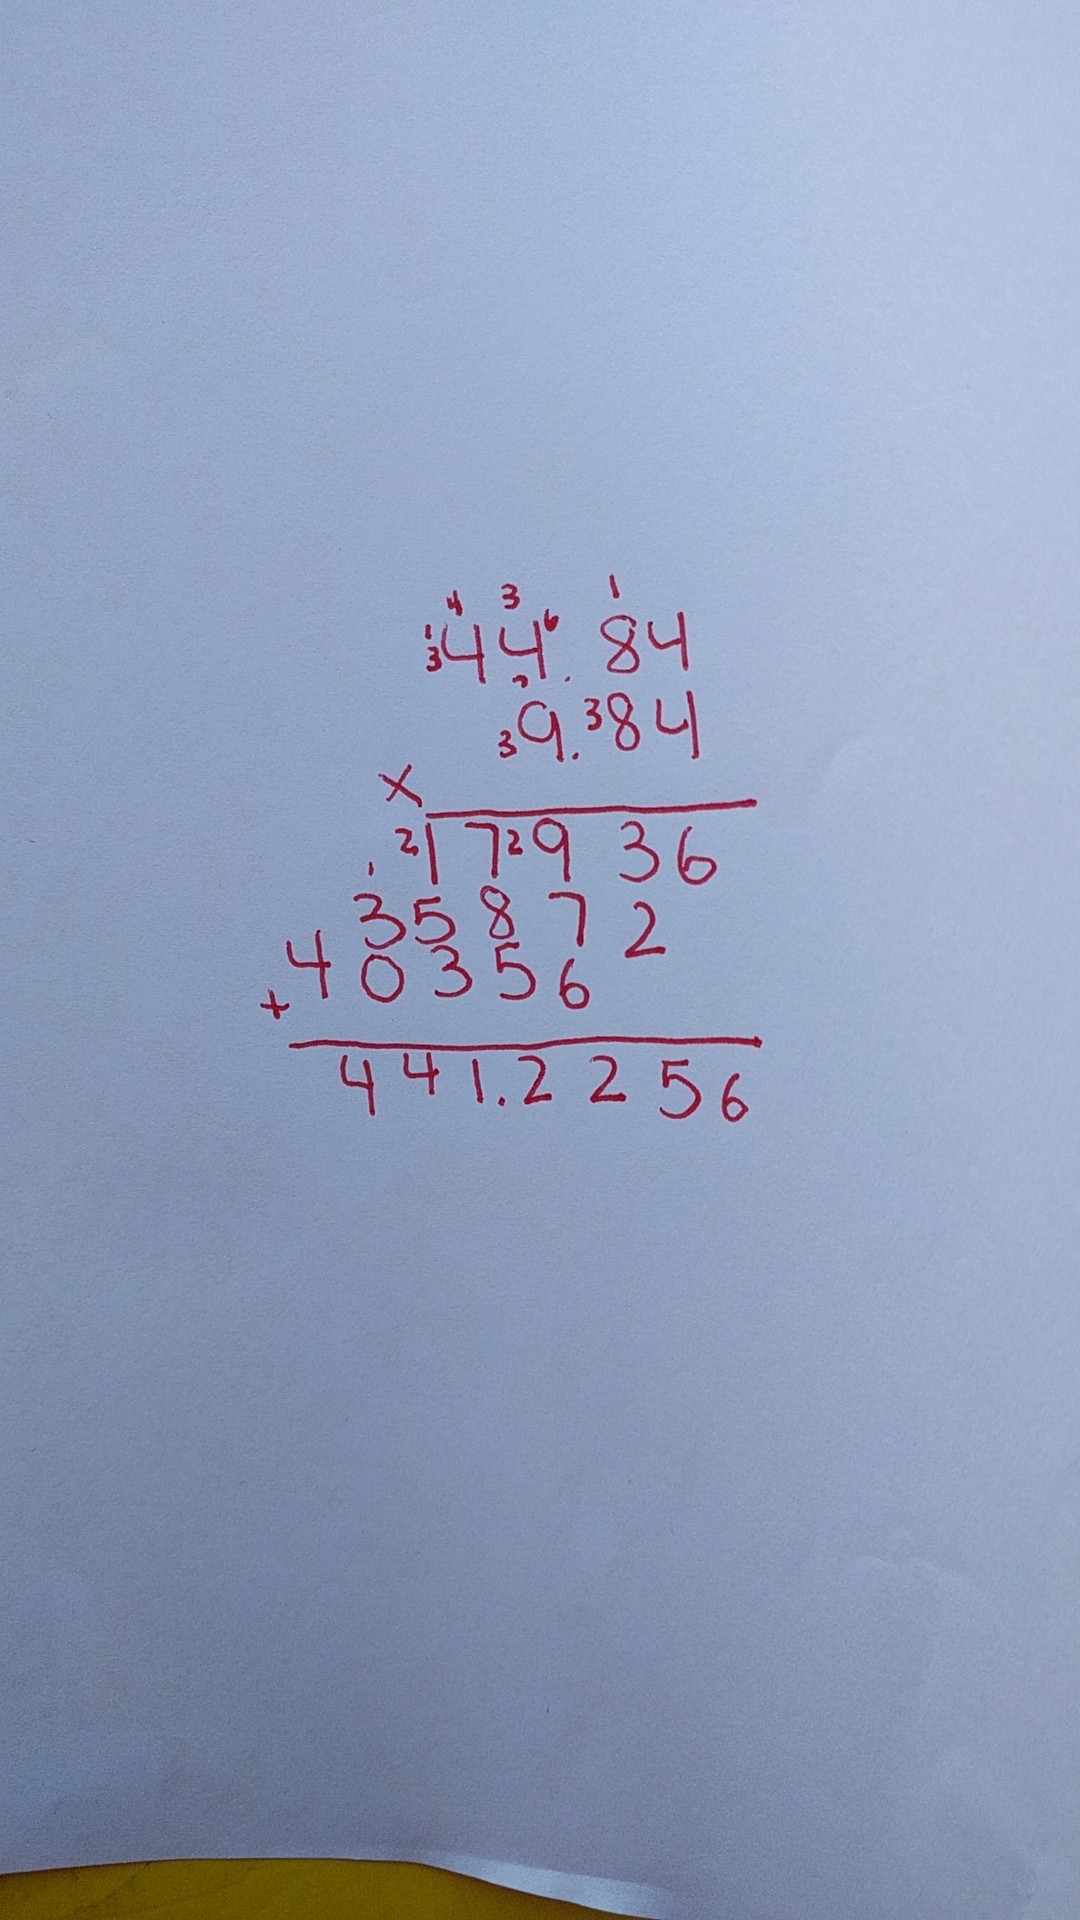 4 3 1
1 3 44.6 84
3 9.3 84
×
2 1 72936
1 35872
+ 40356
441.2256